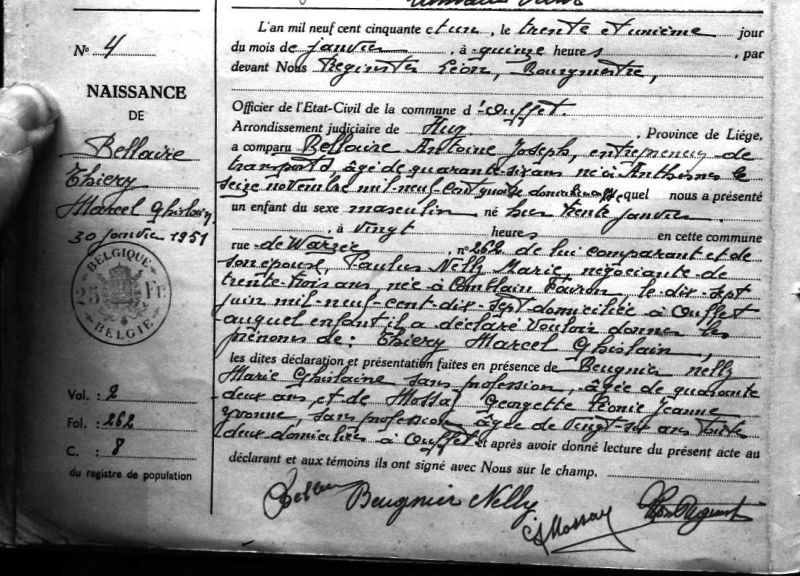 Nº 4
NAISSANCE
DE
Bellaire
Thiery
Marcel Ghislain
30 janvier 1951
BELGIQUE
25 Fr.
BELGIE
Vol. : 2
Fol. : 262
C. : 8
du registre de population
L'an mil neuf cent cinquante et un, le trente et unième jour
du mois de janvier, à quinze heures, par
devant Nous Reginster Léon, Bourgmestre,
Officier de l'Etat-Civil de la commune d'Ouffet.
Arrondissement judiciaire de Huy, Province de Liége,
a comparu Bellaire Antoine Joseph, entrepreneur de
transports, âgé de quarante-six ans né à Anthisnes le
seize novembre mil-neuf-cent quatre domicilié à Ouffet lequel nous a présenté
un enfant du sexe masculin né hier trente janvier
, à vingt heures en cette commune
rue de Warzée, nº 262 de lui comparant et de
son épouse, Paulus Nelly Marie, négociante de
trente-trois ans, née à Comblain Fairon le dix-sept
juin mil-neuf-cent-dix-sept domiciliée à Ouffet
auquel enfant il a déclaré vouloir donner les
prénoms de : Thiery Marcel Ghislain,
les dites déclaration et présentation faites en présence de Beugnier Nelly
Marie Ghislaine sans profession, âgée de quarante
deux ans et de Massa Georgette Léonie Jeanne
Yvonne, sans profession âgée de vingt-six ans toutes
deux domiciliées à Ouffet et après avoir donné lecture du présent acte au
déclarant et aux témoins ils ont signé avec Nous sur le champ.
Beugnier Nelly